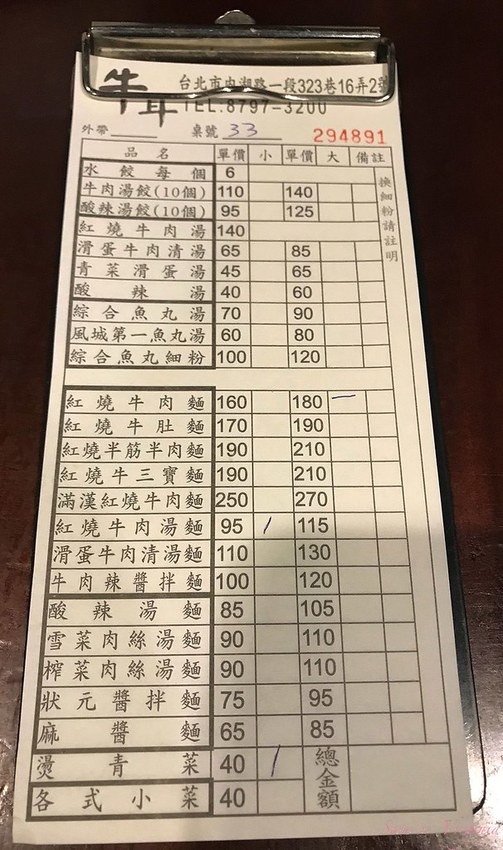 牛耳 台北市內湖路一段323巷16弄2號
TEL:8797-3200
外帶 桌號 33 294891
品名 單價 小 單價 大 備註
水餃每個 6
牛肉湯餃(10個) 110 140
酸辣湯餃(10個) 95 125
紅燒牛肉湯 140
滑蛋牛肉清湯 65 85
青菜滑蛋湯 45 65
酸辣湯 40 60
綜合魚丸湯 70 90
風城第一魚丸湯 60 80
綜合魚丸細粉 100 120
換細粉請註明
紅燒牛肉麵 160 180 一
紅燒牛肚麵 170 190
紅燒半筋半肉麵 190 210
紅燒牛三寶麵 190 210
滿漢紅燒牛肉麵 250 270
紅燒牛肉湯麵 95 / 115
滑蛋牛肉清湯麵 110 130
牛肉辣醬拌麵 100 120
酸辣湯麵 85 105
雪菜肉絲湯麵 90 110
榨菜肉絲湯麵 90 110
狀元醬拌麵 75 95
麻醬麵 65 85
燙青菜 40 /
各式小菜 40
總金額